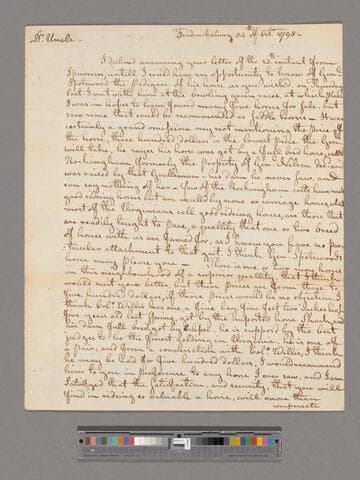 Dr. Uncle — Fredericksburg 24th of Octr. 1795 —
I delayed answering your letter of the 12th. instant from
untill I could have an opportunity to know of Genl.
Spotswood the Pedigree of his horse as you wished. Thursday
last I met with him at the bowling green races, at which place
I was in hopes to have found many fine horses for sale, but
saw none that could be recommended as saddle horses — It was
certainly a grand omission my not mentioning the price of
the horse, three hundred dollars is the lowest price the Genl.
will take, he says his horse was got by a full bred horse called
Rockingham formerly the property of Genl. Nelson who
was raised by that Gentleman; his dam he never saw, and
can say nothing of her — few of the Rockingham colts have made
good riding horses but are excellent as carriage horses, what
most of the Virginians call good riding horses, are those that
are readily taught to pace, a quality that one or two breed
of horses with us are famed for, as I know you have no par-
-ticular attachment to that gait, I think Genl. Spotswoods
horse may please you. There is one or two horses
in this neighbourhood of a superior quality that I think
would suit you better, but their prices are from three to
five hundred dollars, if those prices would be no objection, I
think Colo. Willis has one a full fifteen feet two inches high
five years old last spring, got by the imported horse Shark, and
his dam full bred got by he is supposed by the best
judges to be the finest Gelding in Virginia, he is one of
a pair, and from a conversation with Colo. Willis, I think
he may be had for five hundred dollars, I would recommend
him to you in preference to any horse I ever saw, and I am
satisfyed that the satisfaction, and security, that you will
find in riding so valuable a horse, will more than
compensate